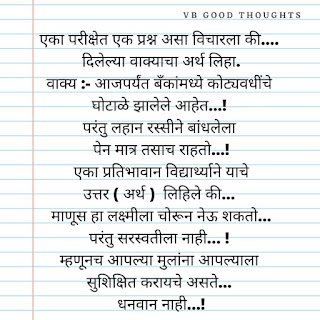 VB GOOD THOUGHTS
एका परीक्षेत एक प्रश्न असा विचारला की....
दिलेल्या वाक्याचा अर्थ लिहा.
वाक्य :- आजपर्यंत बँकांमध्ये कोट्यवधींचे
घोटाळे झालेले आहेत...!
परंतु लहान रस्सीने बांधलेला
पेन मात्र तसाच राहतो...!
एका प्रतिभावान विद्यार्थ्याने याचे
उत्तर ( अर्थ ) लिहिले की...
माणूस हा लक्ष्मीला चोरून नेऊ शकतो...
परंतु सरस्वतीला नाही... !
म्हणूनच आपल्या मुलांना आपल्याला
सुशिक्षित करायचे असते...
धनवान नाही...!